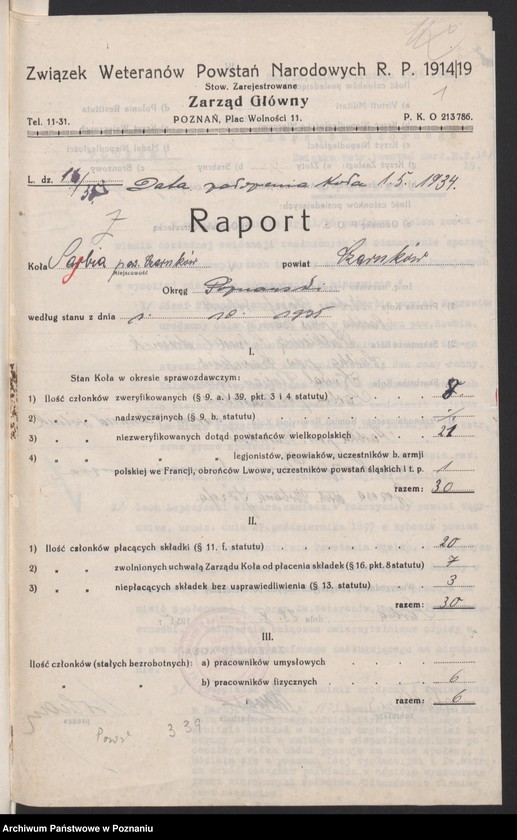 1
Związek Weteranów Powstań Narodowych R. P. 1914|19
Stow. Zarejestrowane
Zarząd Główny
Tel. 11-31. POZNAŃ, Plac Wolności 11. P. K. O 213 786.
L. dz. Data założenia koła 1. 5. 1934.
Raport
Koła Sarbia pow. Czarnków powiat Czarnków
miejscowość
Okręg Poznański
według stanu z dnia 1. 10. 1935
I.
Stan Koła w okresie sprawozdawczym:
1) Ilość członków zweryfikowanych (§ 9. a. i 39, pkt. 3 i 4 statutu) 8
2) „ „ nadzwyczajnych (§ 9. b. statutu)
3) „ „ niezweryfikowanych dotąd powstańców wielkopolskich 21
4) „ „ „ legjonistów, peowiaków, uczestników b. armji
polskiej we Francji, obrońców Lwowa, uczestników powstań śląskich i t. p. 1
razem: 30
II.
1) Ilość członków płacących składki (§ 11. f. statutu) 20
2) „ „ zwolnionych uchwałą Zarządu Koła od płacenia składek (§ 16. pkt. 8 statutu) 7
3) „ „ niepłacących składek bez usprawiedliwienia (§ 13. statutu) 3
razem: 30
III.
Ilość członków (stałych bezrobotnych): a) pracowników umysłowych
„ „ b) pracowników fizycznych 6
razem: 6
339
Archiwum Państwowe w Poznaniu